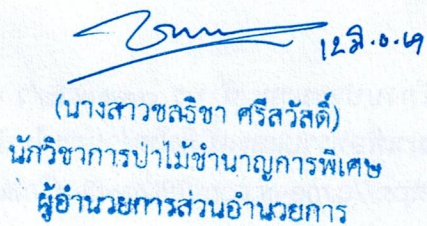 12 มิ.ย. 69
(นางสาวชลธิชา ศรีสวัสดิ์)
นักวิชาการป่าไม้ชำนาญการพิเศษ
ผู้อำนวยการส่วนอำนวยการ